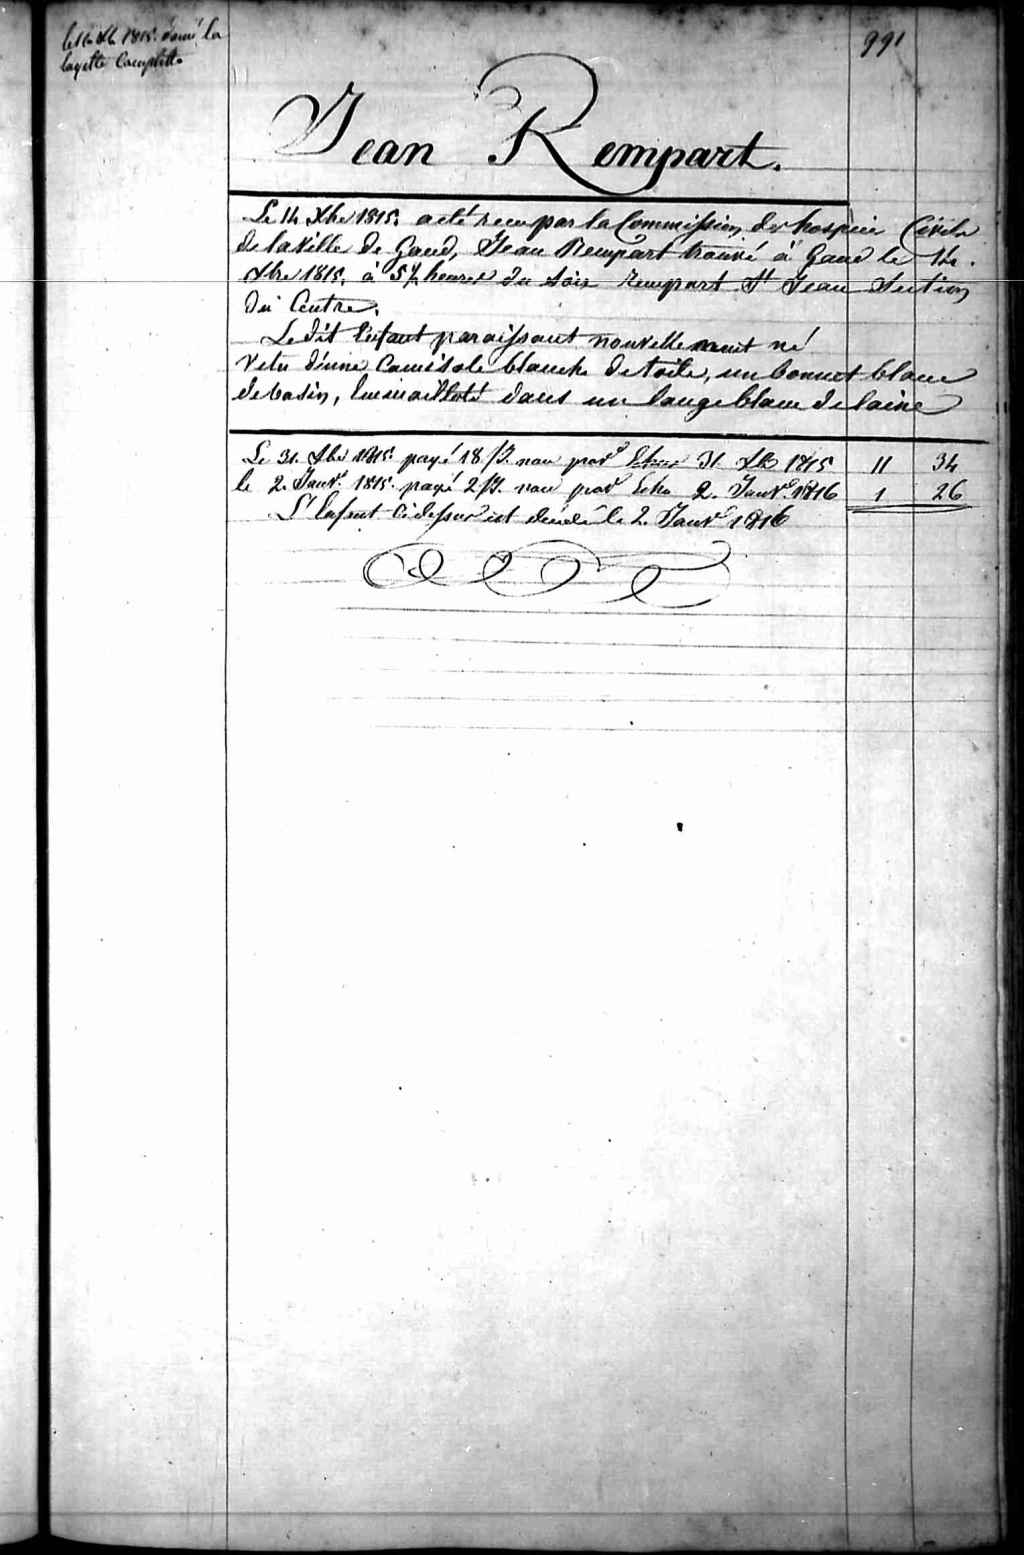 le 14 Xbre 1815. donné la
layette Complette
991
Jean Rempart.
Le 14 Xbre 1815. a été recu par la Commission des hospices Civils
de la Ville de Gand, Jean Rempart trouvé à Gand le 14.
Xbre 1815. à 5½ heures du Soir rempart St Jean Section
du Centre.
Le dit Enfant paraissant nouvellement né
Vetu d'une Camisole blanche de toile, un bonnet blanc
de basin, Emmailloté dans un lange blanc de laine
Le 31. Xbre 1815. payé 18 11 34
31 Xb 1815
le 2 Janvr. 1815. payé 2 2. Janvr. 1816 1 26
L'Enfant Cidessus est décédé le 2 Janvr 1816